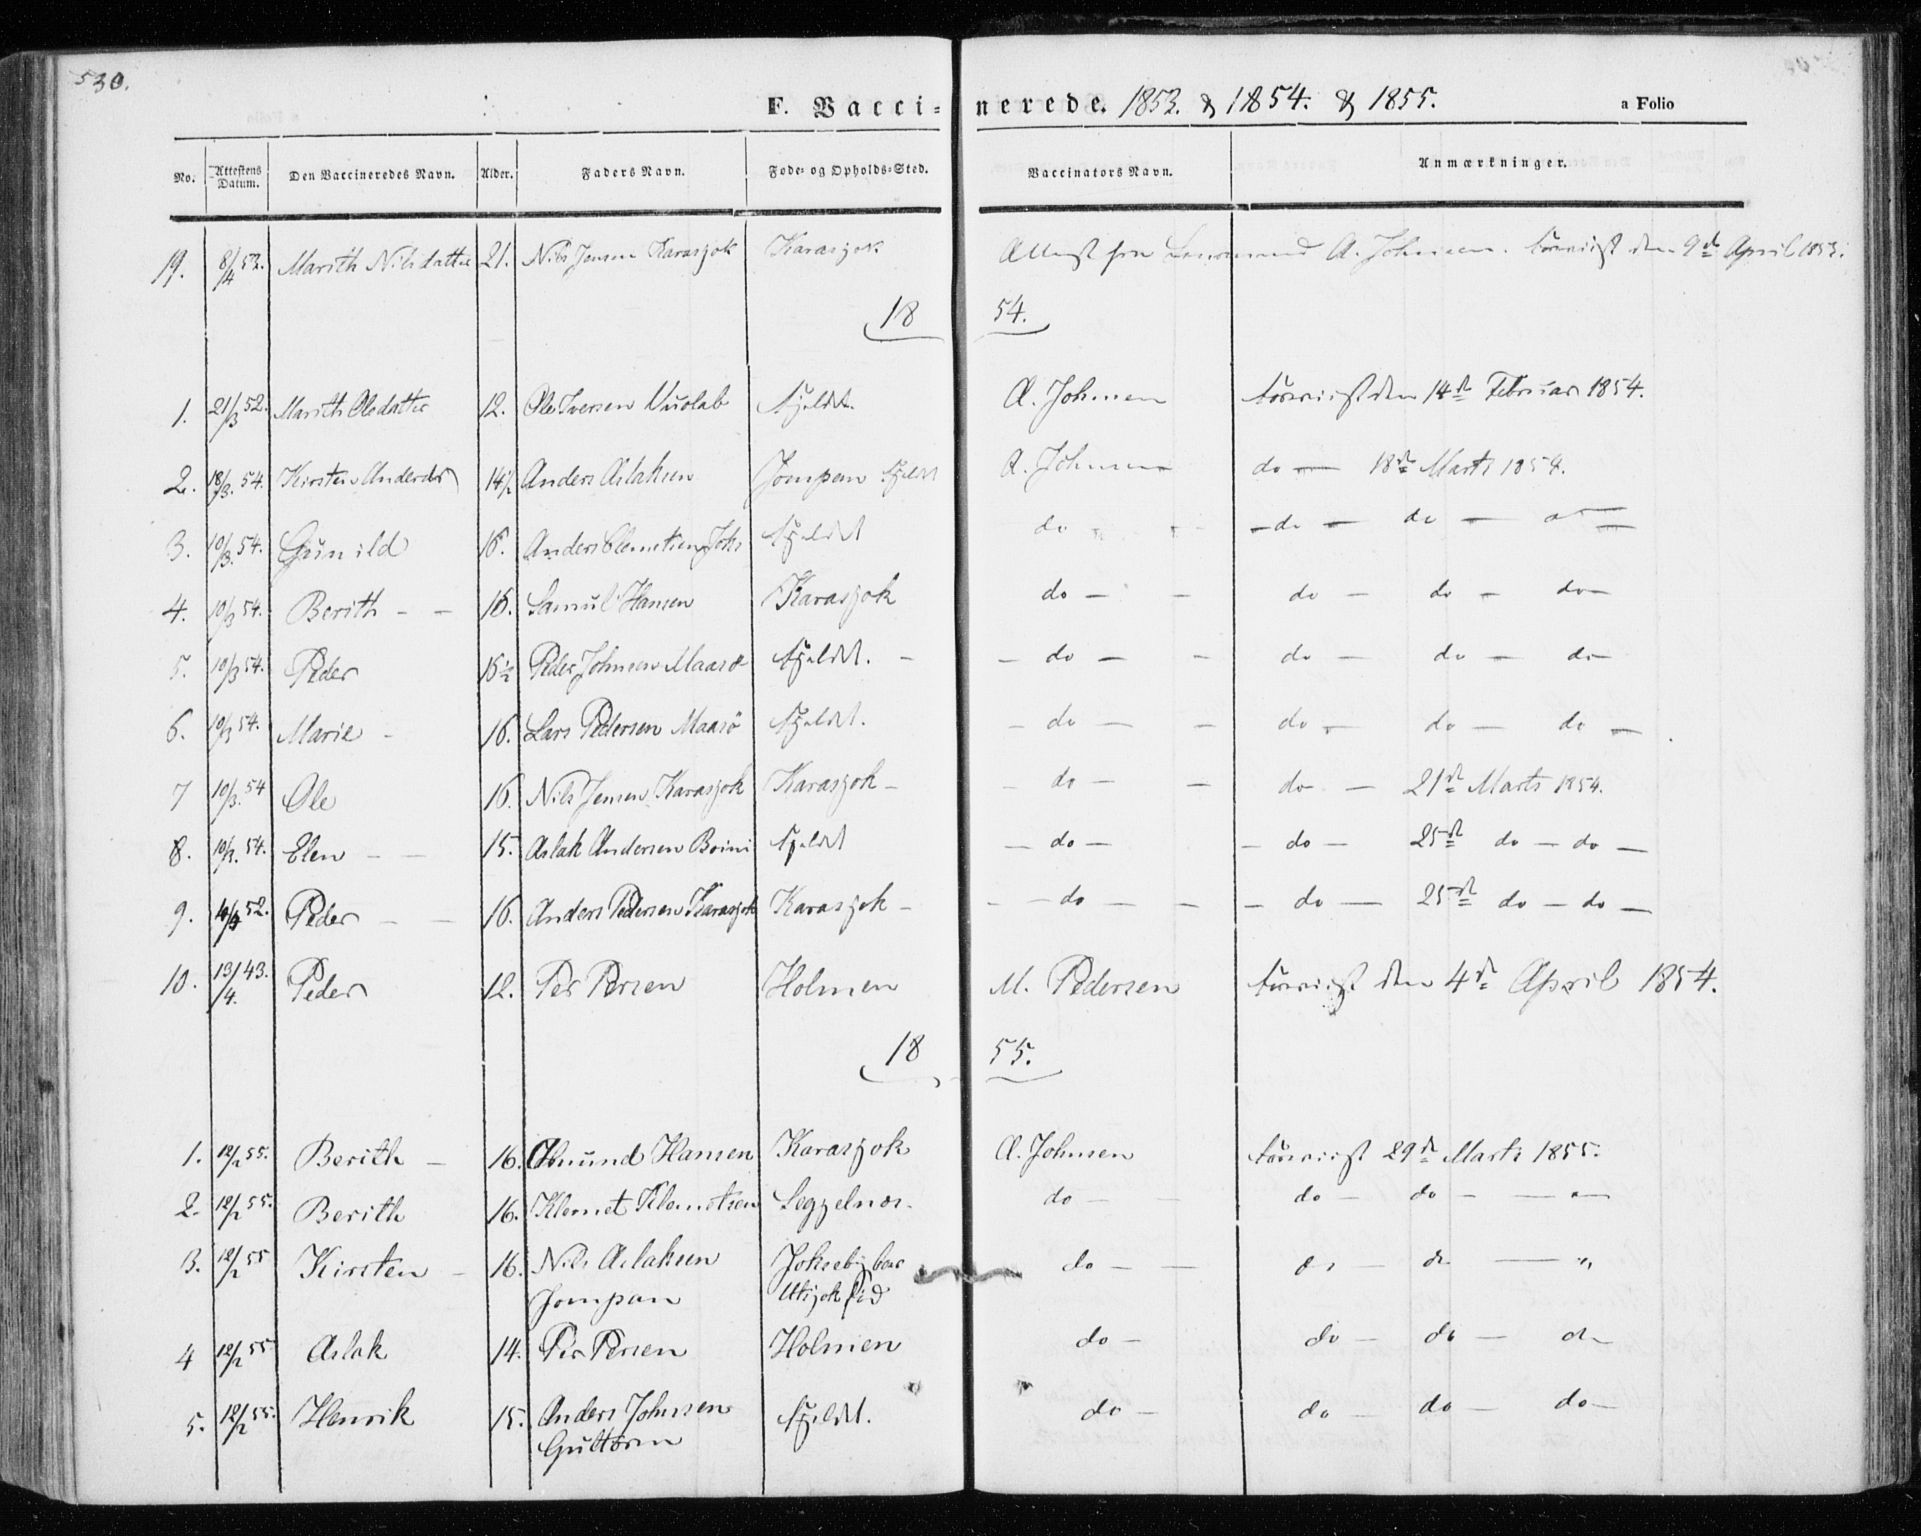 530.
F. Vaccinerede. 1853. & 1854. & 1855. a Folio
No. Attestens Datum. Den Vaccineredes Navn. Alder. Faders Navn. Føde- og Opholds-Sted. Vaccinators Navn. Anmærkninger.
19. 8/4 53. Marith Nilsdatter 21. Nils Jensen Karasjok Karasjok Attest fra Lensmand A. Johnsen. foreviist den 9de April 1853.
1854.
1. 21/3 52. Marith Olsdatter 12. Ole Iversen Vuolab Fjeldet. A. Johnsen foreviist den 14de Februar 1854.
2. 18/3. 54. Kirsten Andersdr 14½ Anders Aslaksen Jompan Fjeldet A. Johnsen do — 18de Marts 1854.
3. 10/3. 54. Gunild 16. Anders Clemetsen Joks Fjeldet do - - - do — do —
4. 10/3 54. Berith - - 16. Samul Hansen Karasjok do — - do — do — do—
5. 10/3 54. Peder 15½ Peder Johnsen Maasø Fjeldet. - - do — - do — do — do—
6. 10/3 54. Marie - 16. Lars Pedersen Maasö Fjeldet. - do — - do — do — do —
7 10/3. 54 Ole 16. Nils Jensen Karasjok Karasjok - - do — - do — 21de Marts 1854.
8. 10/3. 54. Elen - - 15. Aslak Andersen Boini Fjeldet — do — - do — 25de do — do —
9. 4/4 52. Peder - - 16. Anders Pedersen Karasjok Karasjok - - - do — - - do — 25de do — do —
10. 13/4. 43. Peder 12. Per Persen Holmen M. Pedersen foreviist den 4de April 1854.
1855.
1. 12/2 55. Berith - 16. Amund Hansen Karasjok A. Johnsen foreviist 29de Marts 1855.
2. 12/2 55. Berith 16. Klemet Klemetsen Seggelnes. do - - do — do -
3. 12/2 55 Kirsten - 16. Nils Aslaksen do - - do — do — "
Jompan Utsjok
4 12/2 55 Aslak 14. Per Persen Holmen do - do — do — do
5. 12/2 55. Henrik 15. Anders Johnsen Fjeldet. do - do — do — do—
Guttorm